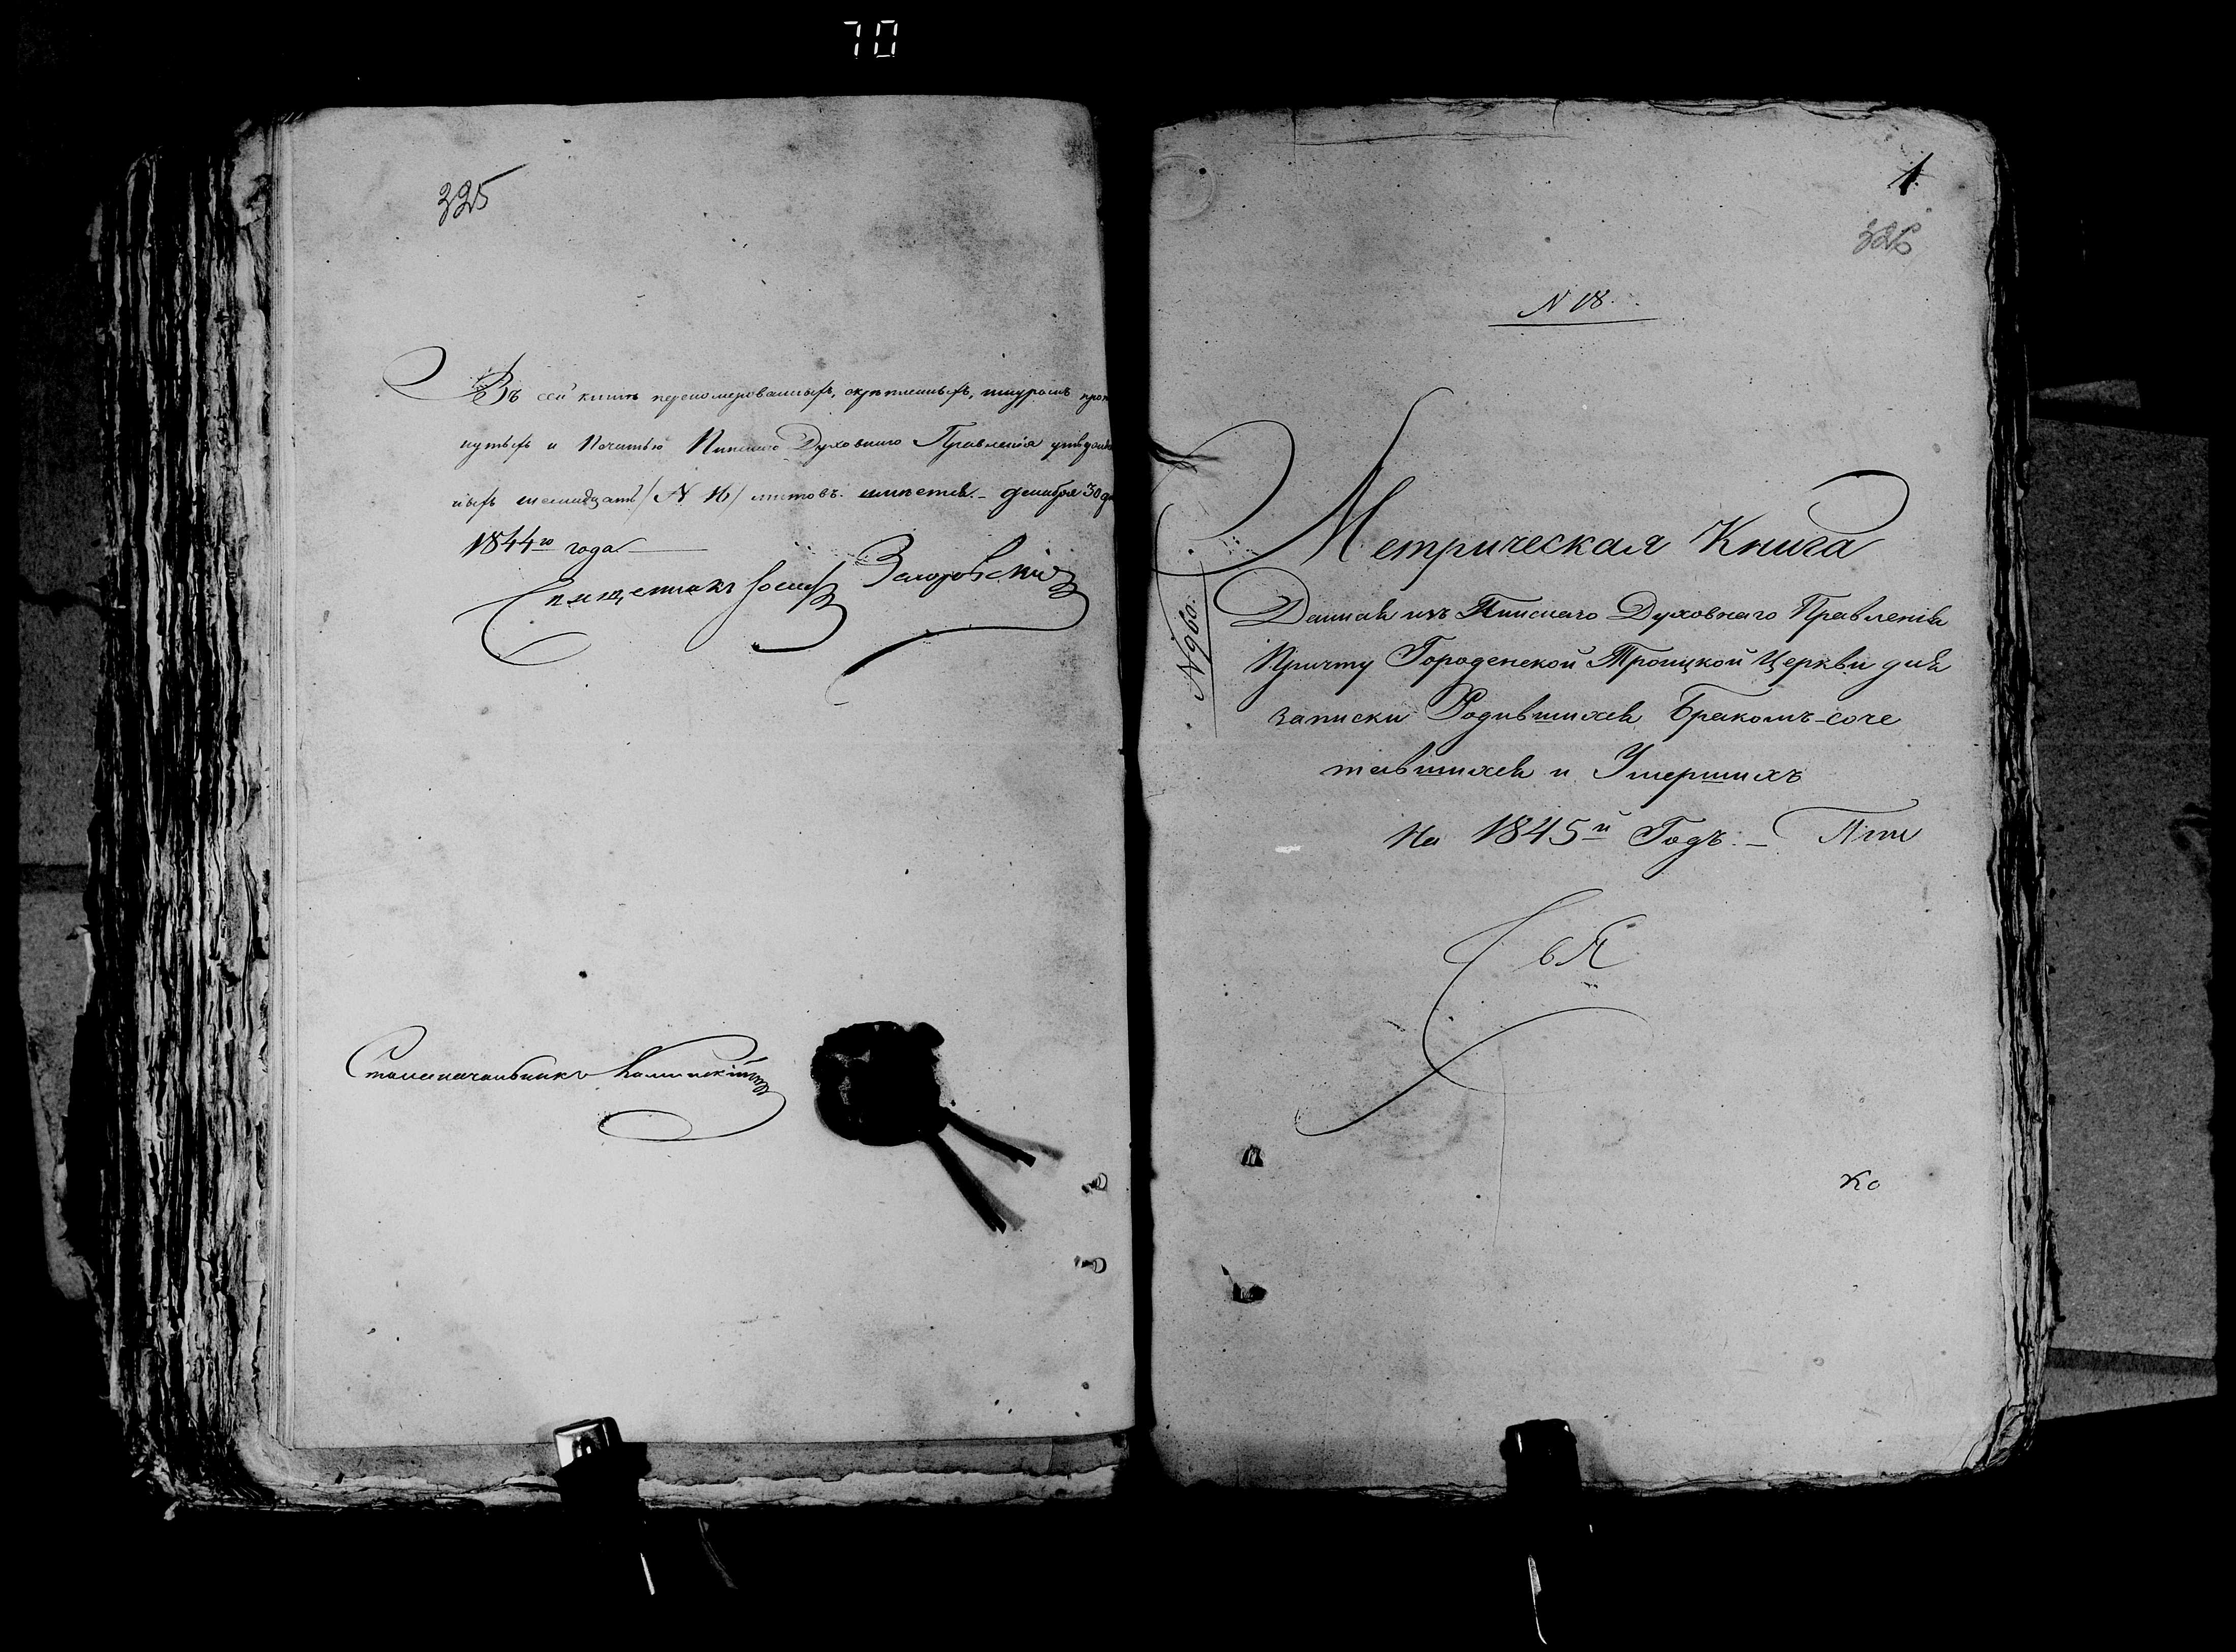 70
325
Въ сей книгѣ перенумерованныхъ, скрѣпленныхъ, шнуромъ прон
нутыхъ и Печатью Пинскаго Духовнаго Правленія утвержден
ныхъ шестнадцать /N 16/ листовъ имѣется. - Декабря 30 дн
1844го года
Столоначальникъ
1
326
N 18.
Метрическая Книга
N 960.
Данная изъ Пинскаго Духовнаго Правленія
Причту Городенской Троицкой Церкви для
записки Родившихся Бракомъ-соче
тавшихся и Умершихъ
На 1845й Годъ. -
Ко